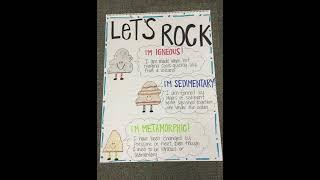 LeTS ROCK
I'M IGNEOUS!
I am made when hot
magma cools quickly
from a volcano
I'M SEDIMENTARY
I am formed by
layers of sediment
being squished together
and under the ocean
I'M METAMORPHIC!
I have been changed by
pressure or heat. Even though
I used to be igneous or
sedimentary